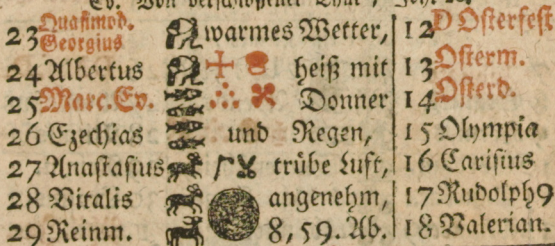 Ev. Von verschloßener Thür, Joh. 20.
23 Quasimod. Georgius warmes Wetter, 12 D Osterfest
24 Albertus heiß mit 13 Osterm.
25 Marc. Ev. Donner 14 Osterd.
26 Ezechias und Regen, 15 Olympia
27 Anastasius trübe Luft, 16 Carisius
28 Vitalis angenehm, 17 Rudolph9
29 Reinm. 8, 59. Ab. 18 Valerian.